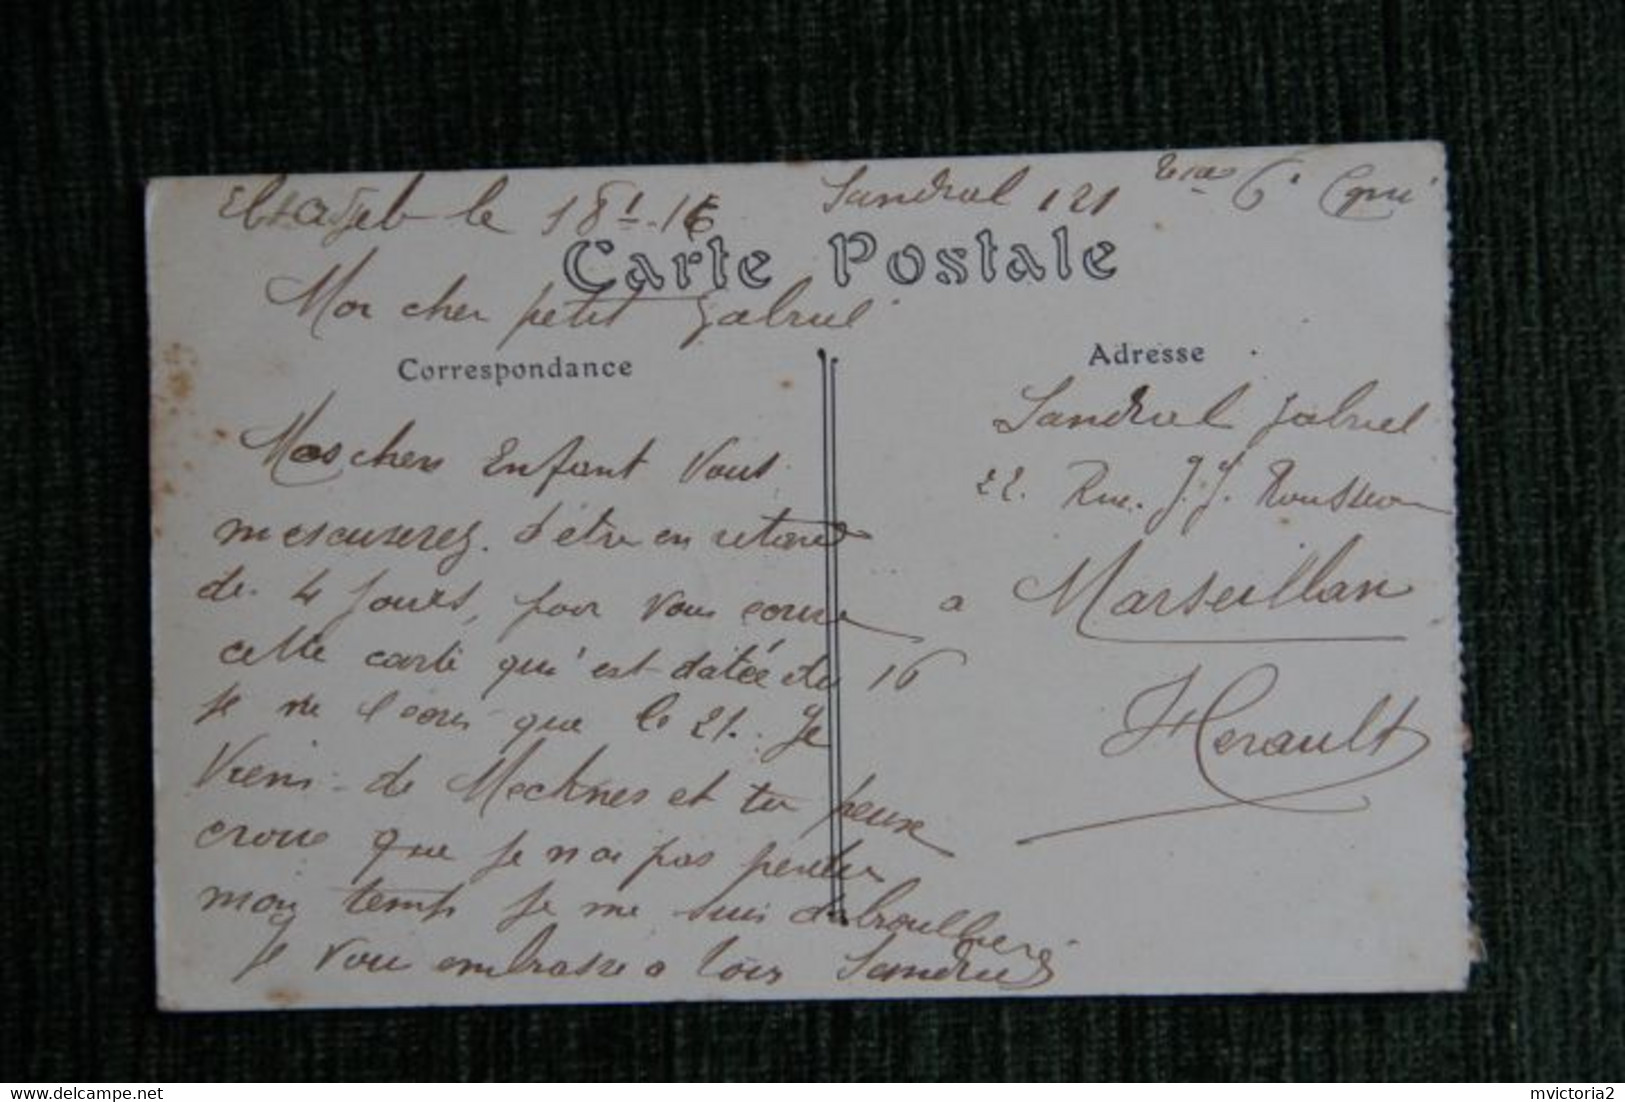 El Hajeb le 18-1-16 Sandral 121 6e Cgnie
Carte Postale
Mon cher petit Gabriel
Correspondance
Mos chers Enfant Vous
mescuserez. d'être en retard
de. 4 Jours, pour vous
cette carte qui est datée du 16
Je ne que le 21. Je
Viens de Mecknes et tu peux
croire que Je n'ai pas perdu
mon temps Je me suis
Je vou embrasse a tous Sandral
Adresse
Sandral Gabriel
22. Rue. J. J. Rousseau
a Marseillan
Herault
mvictoria2